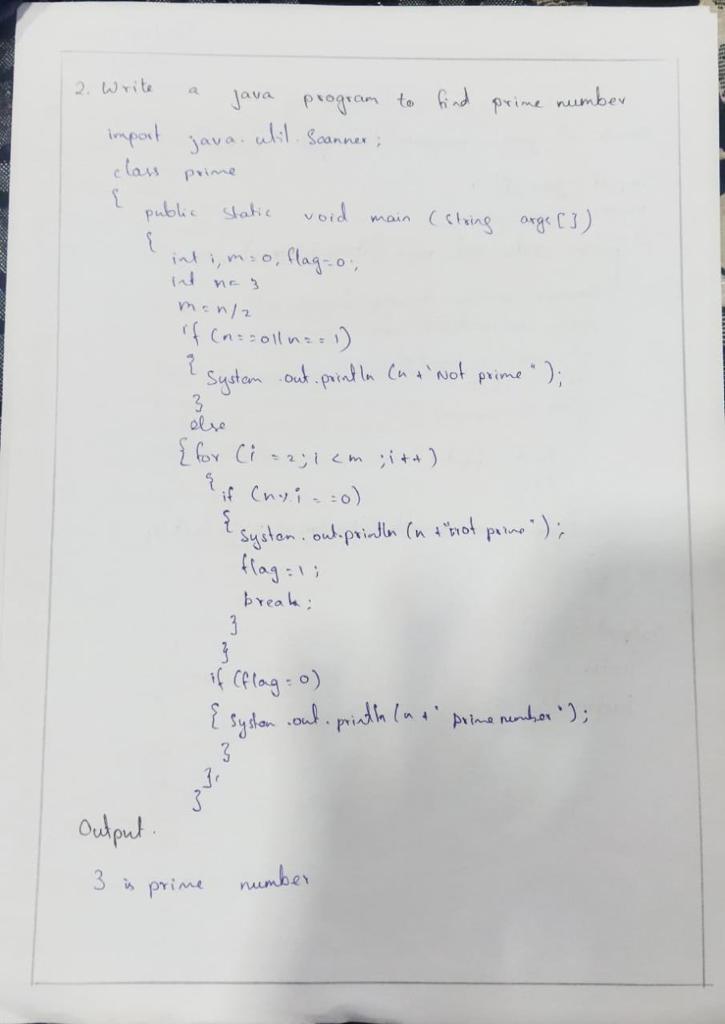 2. Write a java program to find prime number
import java.util.Scanner;
class prime
{
public static void main (String args[])
{
int i, m=0, flag=0;
int n= 3
m=n/2
if (n==0||n==1)
{
System .out.println (n +"Not prime");
}
else
{ for (i =2; i <m ;i++)
{
if (n%i ==0)
{
System. out.println (n +"not prime");
flag=1;
break;
}
}
if (flag=0)
{ System .out. println (n +" prime number");
}
}
}
Output.
3 is prime number